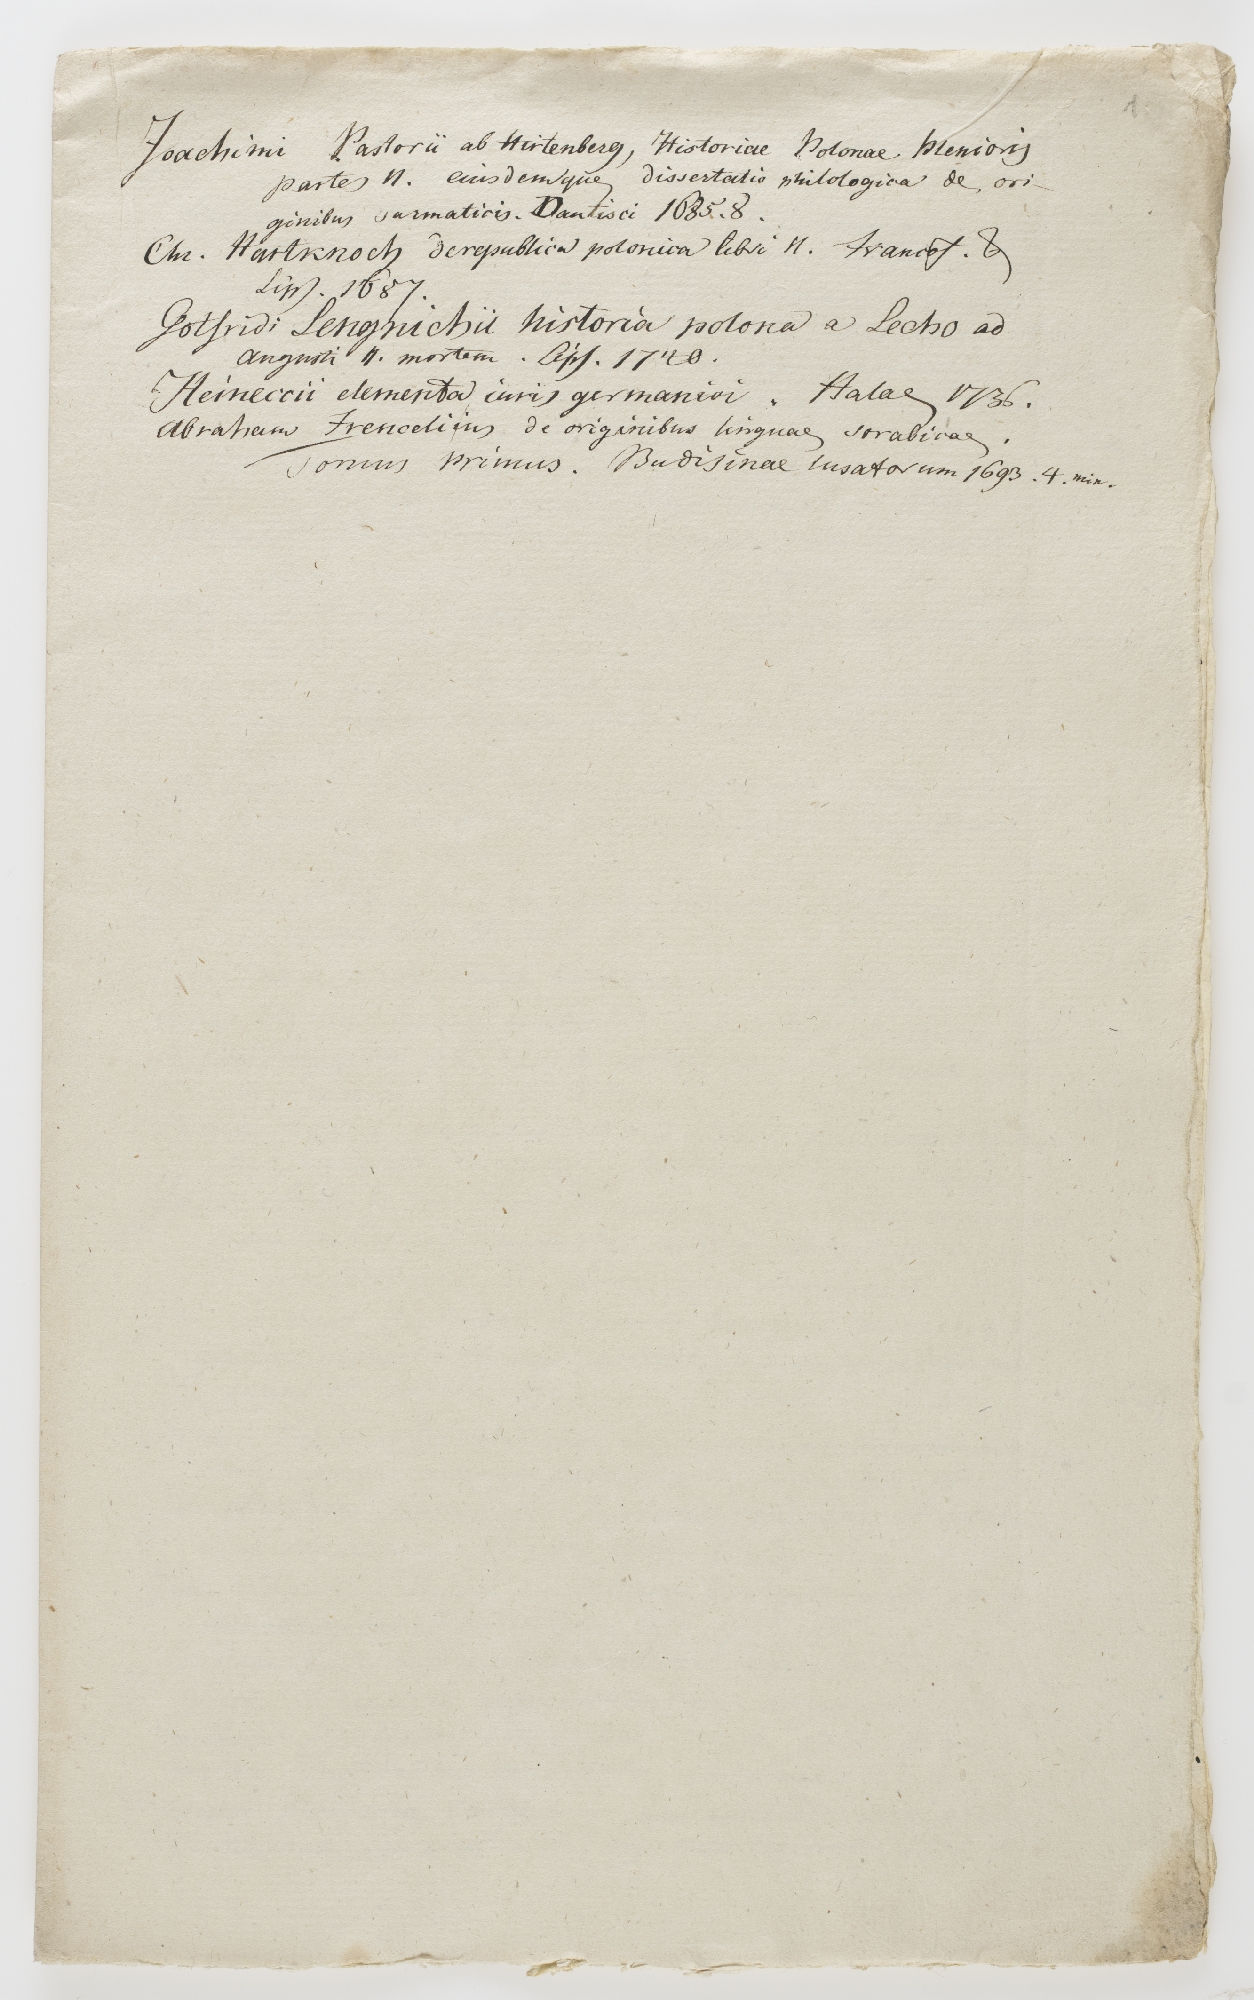 1.
Joachimi Pastorii ab Hirtenberg, Historiae Polonae plenioris
partes II. eiusdemque dissertatio philologica de ori-
ginibus sarmaticis. Dantisci 1685. 8.
Chr. Hartknoch de republica polonica libri II. Francof. &
Lips. 1687.
Gotfridi Lengnichii historia polona a Lecho ad
Augusti II. mortem. Lips. 1740.
Heineccii elementa iuris germanici. Halae 1736.
Abraham Frencelius de originibus linguae sorabicae.
Tomus primus. Budisinae lusatorum 1693. 4. min.